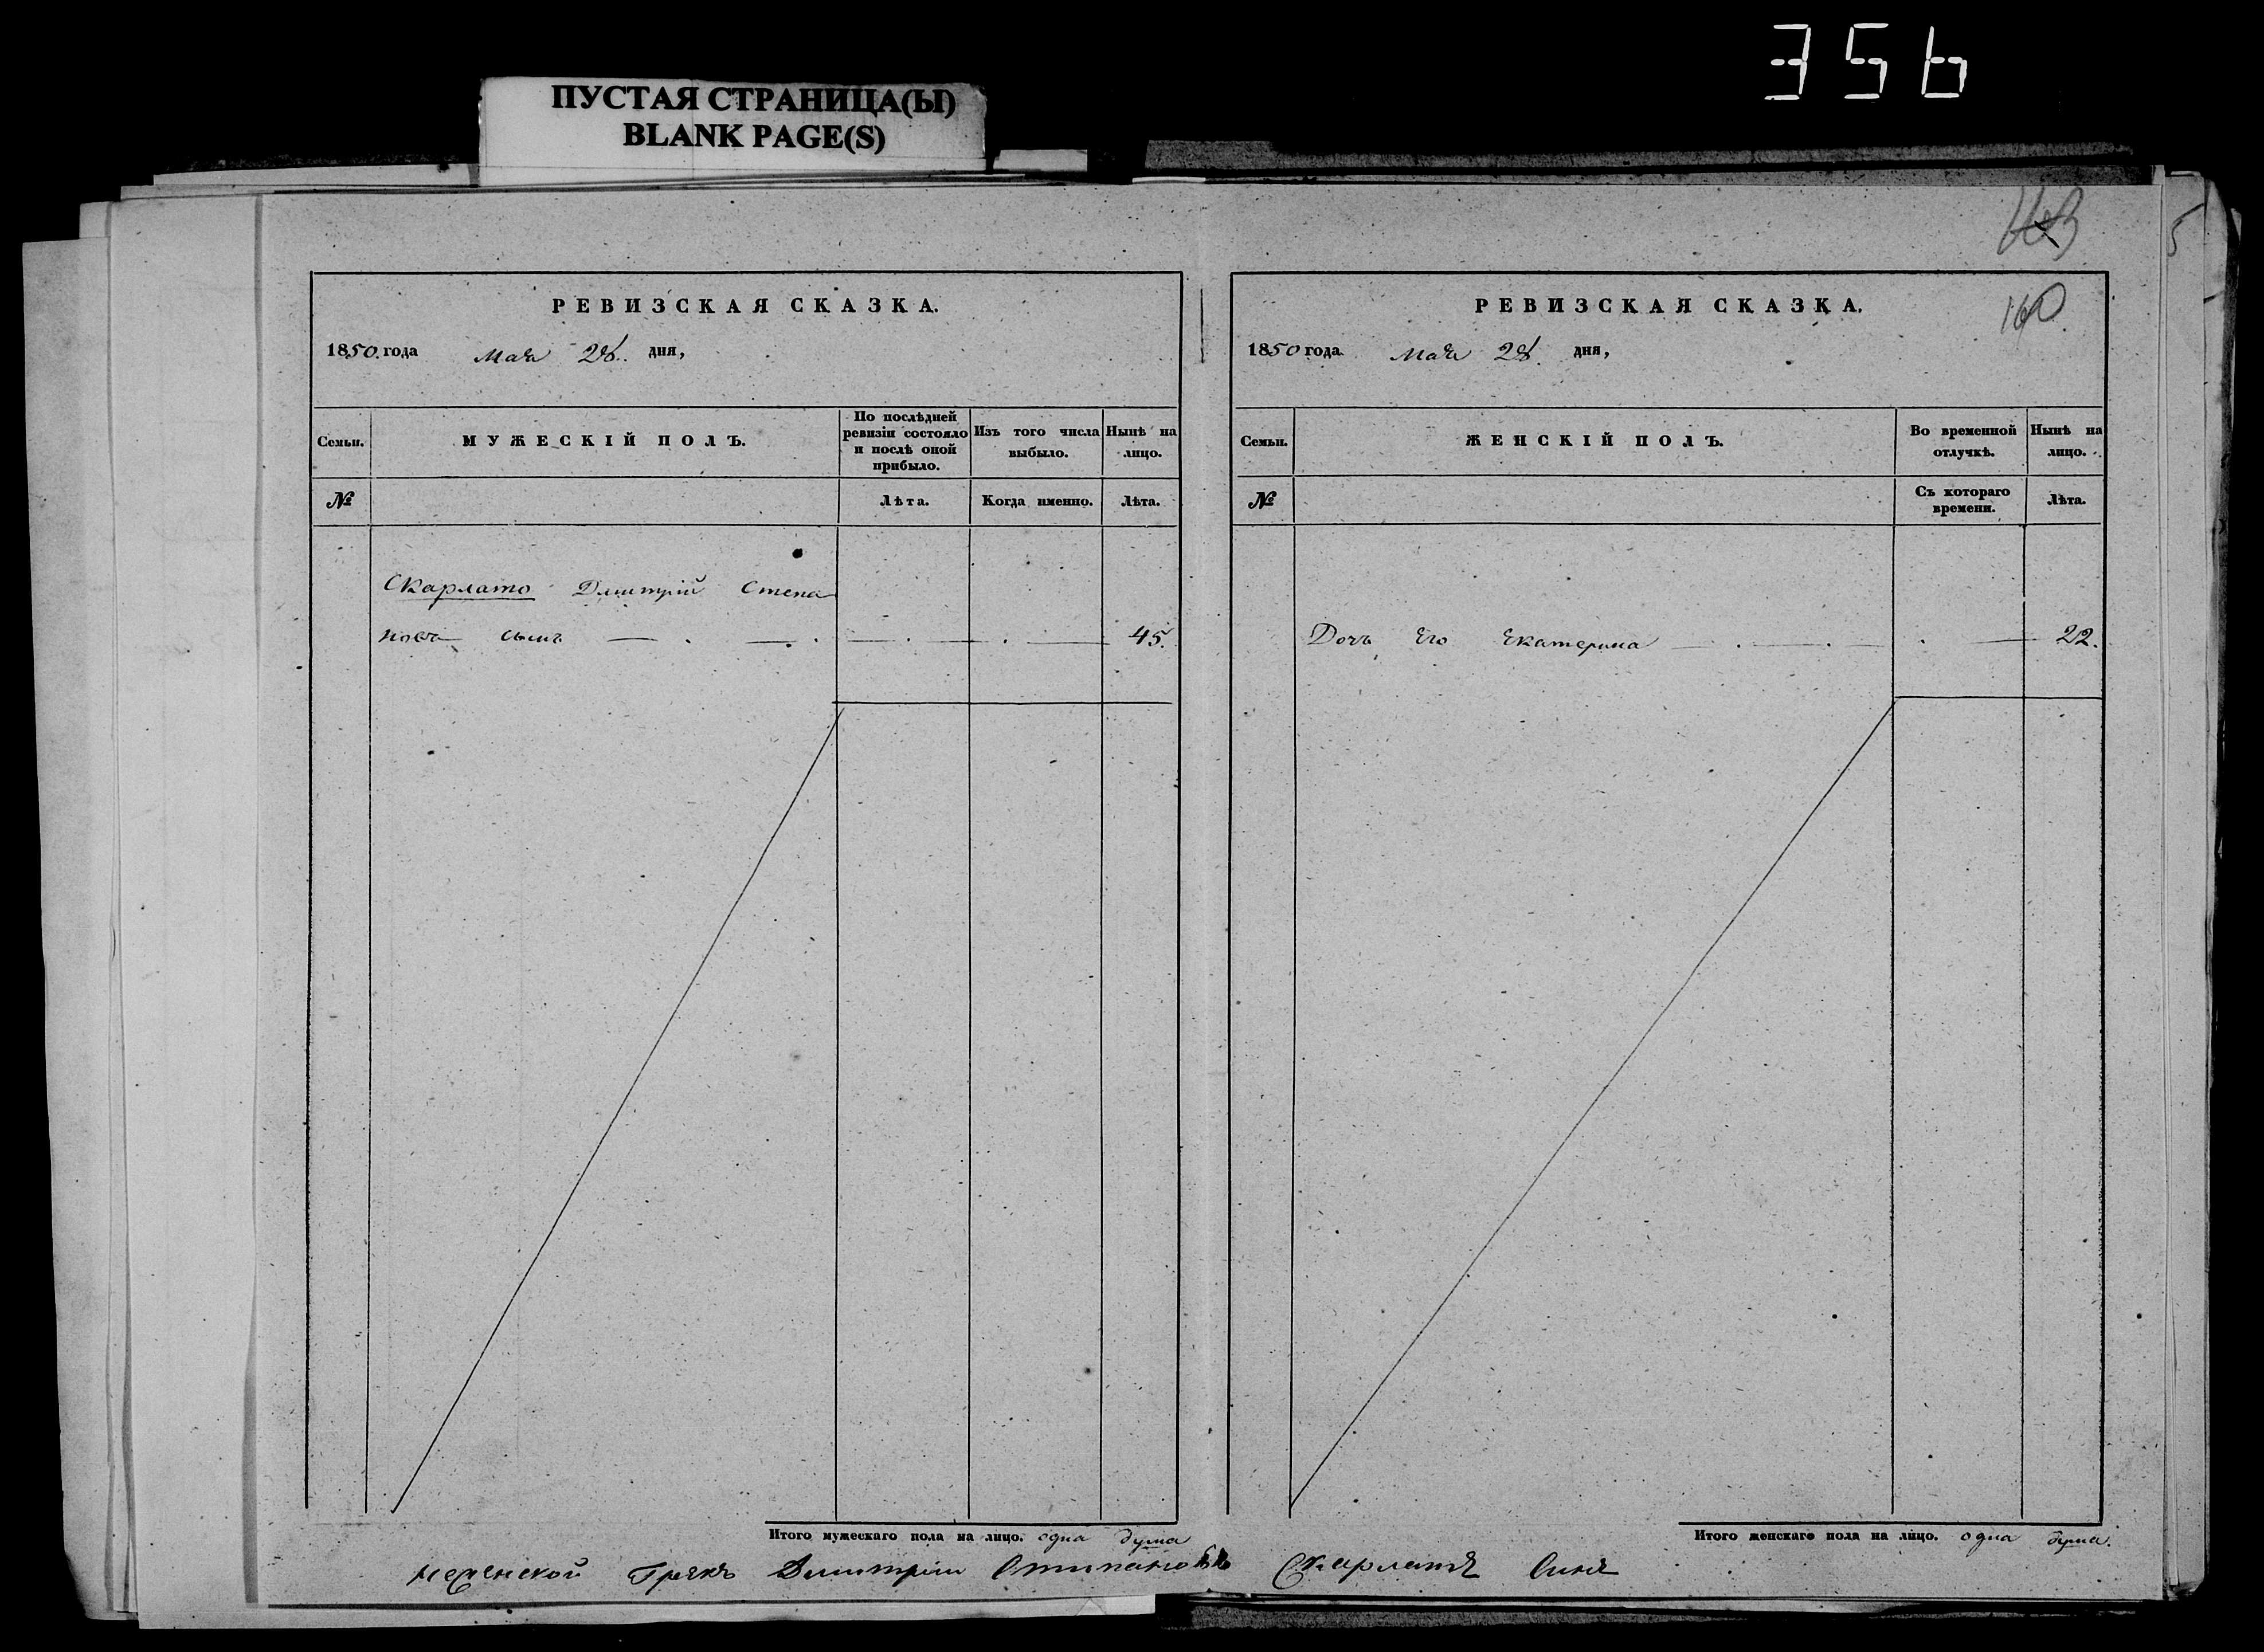 356
ПУСТАЯ СТРАНИЦА(Ы)
BLANK PAGE(S)
РЕВИЗСКАЯ СКАЗКА.
1850. года Мая 28. дня,
Семьи.
МУЖЕСКІЙ ПОЛЪ.
По послѣдней ревизіи состояло и послѣ оной прибыло.
Изъ того числа выбыло.
Нынѣ на лицо.
№
Лѣта.
Когда именно.
Лѣта.
Скарлато Дмитрій Степа
новъ сынъ 45.
Итого мужескаго пола на лицо. одна душа
160
РЕВИЗСКАЯ СКАЗКА.
1850 года. Мая 28. дня,
Семьи.
ЖЕНСКІЙ ПОЛЪ.
Во временной отлучкѣ.
Нынѣ на лицо.
№
Съ котораго времени.
Лѣта.
Дочь Его Екатерина 22.
Итого женскаго пола на лицо. одна душа.
Грекъ Дмитрій Скарлато
5